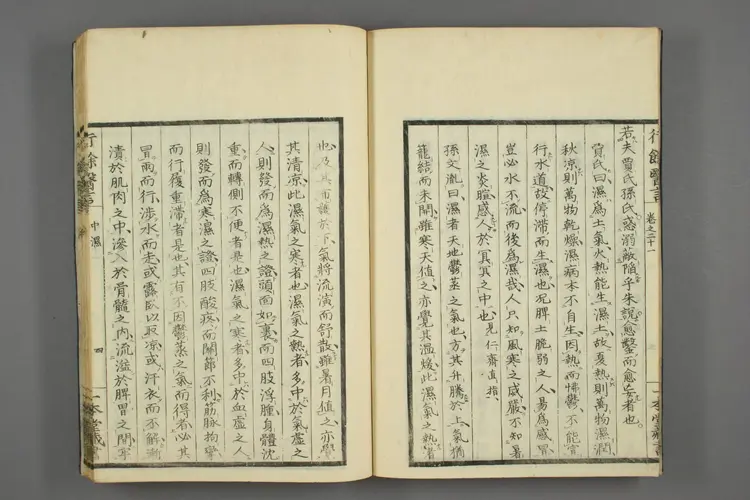 行餘醫言 卷之二十一
若夫賈氏孫氏惑溺蔽陷乎朱說愈鑿而愈妄者也
賈氏曰濕爲土氣火熱能生濕土故夏熱則萬物濕潤
秋涼則萬物乾燥濕病本不自生因熱而怫鬱不能宣
行水道故停滯而生濕也况脾土脆弱之人易爲感冒
豈必水不流而後爲濕哉人只知風寒之威嚴不知暑
濕之炎膃感人於冥冥之中也見仁齋直指
孫文胤曰濕者天地鬱蒸之氣也方其升騰於上氣猶
籠結而未開雖寒天値之亦覺其溫煖此濕氣之熱者
也及其布護於下氣將流演而舒散雖暑月値之亦覺
其清凉此濕氣之寒者也濕氣之熱者多中於氣虛之
人則發而爲濕熱之證頭面如裹而四肢浮腫身體沈
重而轉側不便者是也濕氣之寒者多中於血虛之人
則發而爲寒濕之證四肢酸疼而關節不利筋脉拘攣
而行履重滯者是也其有不因鬱蒸之氣而得者必其
冒雨而行涉水而走或露臥以取凉或汗衣而不解漸
漬於肌肉之中滲入於骨髓之内流溢於脾胃之間
行餘醫言 中濕 四 一本堂藏書